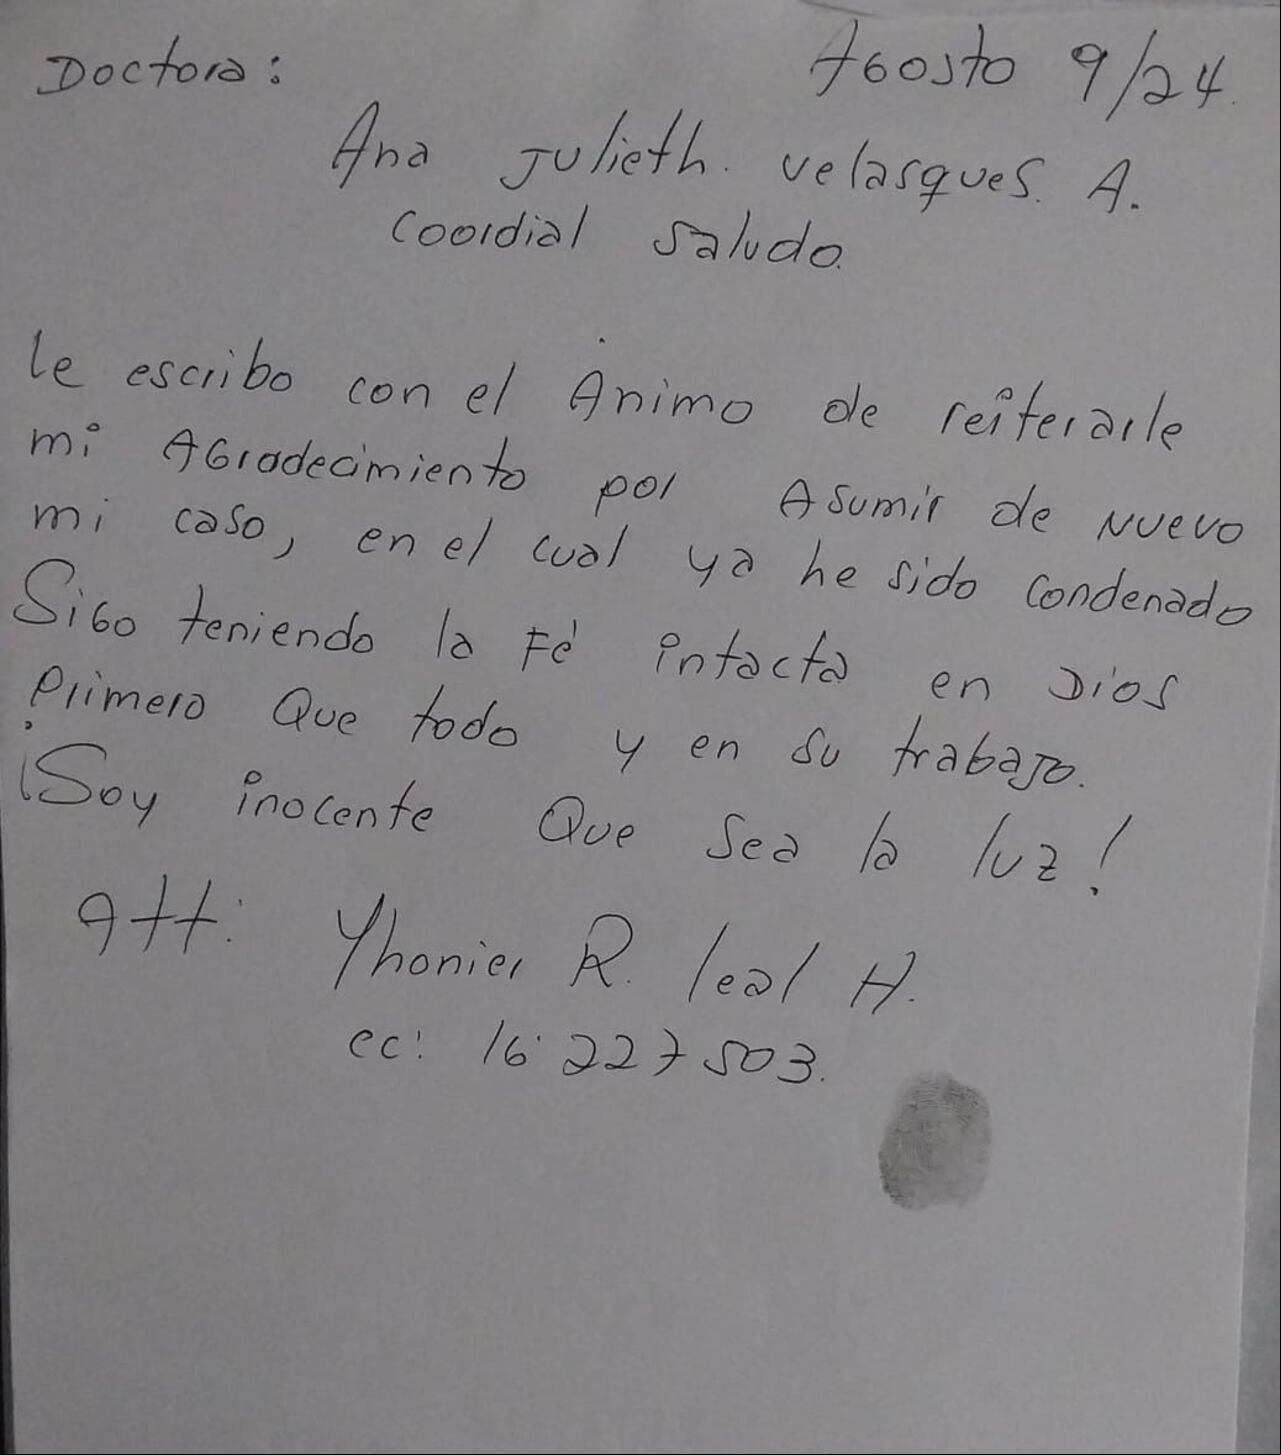 Doctora: Agosto 9/24.
Ana Julieth. Velasques. A.
Coordial Saludo.
le escribo con el Animo de reiterarle
mi Agradecimiento por Asumir de Nuevo
mi caso, en el cual ya he sido condenado
Sigo teniendo la Fé intacta en Dios
Primero Que todo y en su trabajo.
¡Soy inocente Que sea la luz!
att: Yhonier R. leal H.
cc: 16.227503.